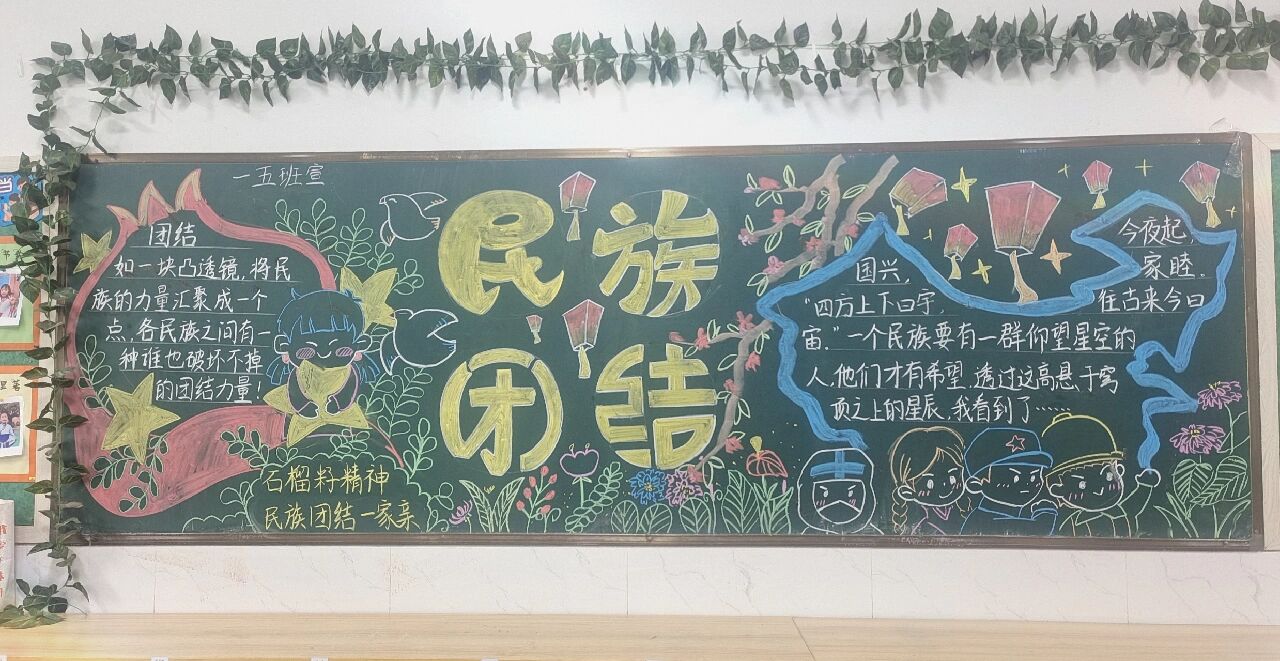 一五班宣
团结
如一块凸透镜,将民
族的力量汇聚成一个
点,各民族之间有一
种谁也破坏不掉
的团结力量!
石榴籽精神
民族团结一家亲
民族
团结
今夜起,
国兴,家睦。
"四方上下曰宇,往古来今曰
宙."一个民族要有一群仰望星空的
人,他们才有希望,透过这高悬于穹
顶之上的星辰,我看到了……